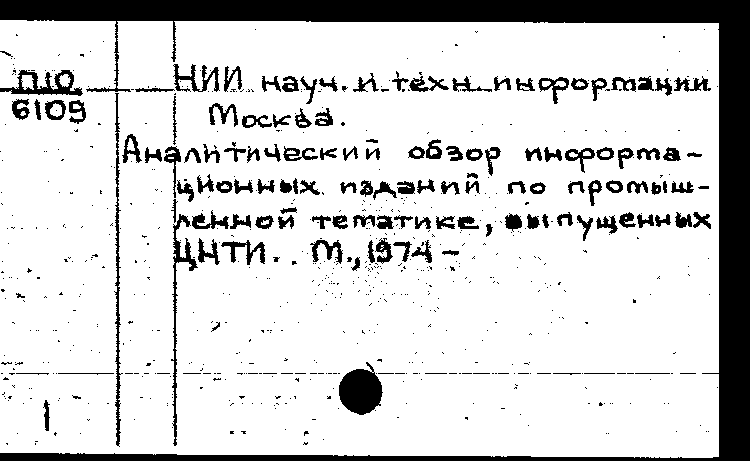 П10
6109
НИИ науч. и техн. информации
Москва.
Аналитический обзор информа-
ционных изданий по промыш-
ленной тематике, выпущенных
ЦНТИ. . М., 1974 -
1